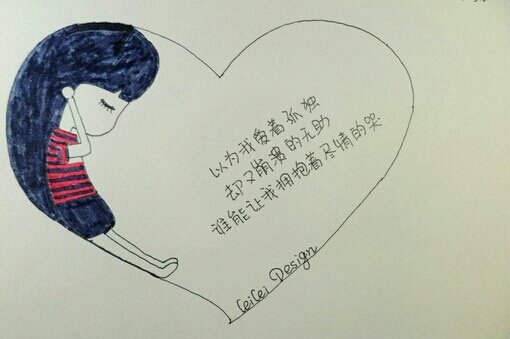 以为我爱着孤独
却又崩溃的无助
谁能让我拥抱着尽情的哭
CeiCei Design